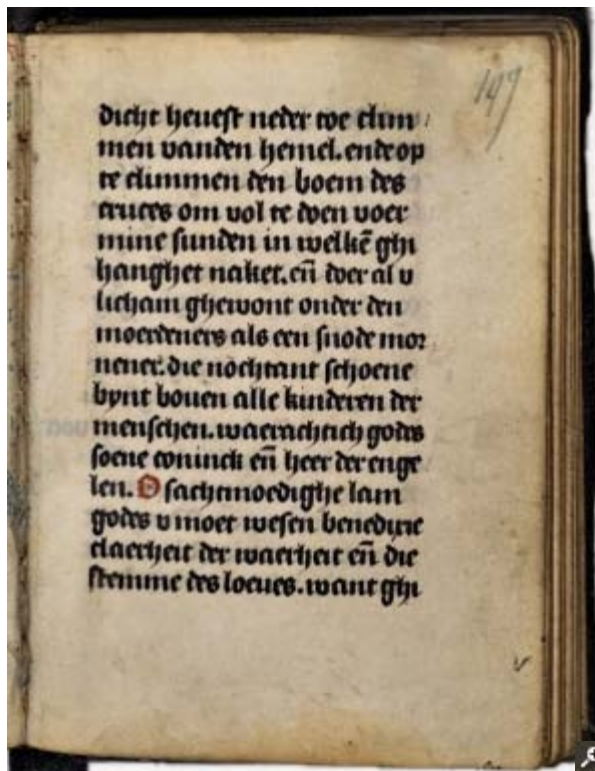 149
dicht heuest neder toe clim
men vanden hemel. ende op
te climmen den boem des
cruces om vol te doen voer
mine sunden in welkē ghi
hanghet naket. en̄ doer al v
licham ghewont onder den
moerdeners als een snode mor
nener. die nochtant schoene
bynt bouen alle kinderen der
menschen. waerachtich godes
soene coninck en̄ heer der enge
len. O sachtmoedighe lam
godes v moet wesen benedixie
claerheit der waerheit en̄ die
stemme des loeues. want ghi